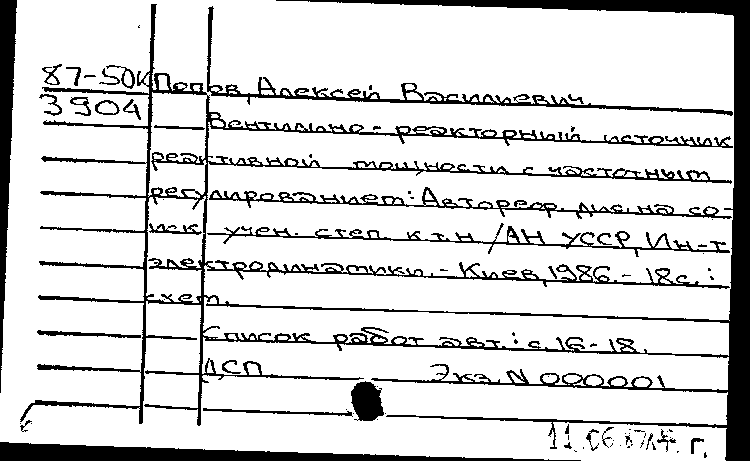 87-50к Попов, Алексей Васильевич.
3904 Вентильно-реакторный источник
реактивной мощности с частотным
регулированием: Автореф. дис. на со-
иск. учен. степ. к.т.н /АН УССР, Ин-т
электродинамики. - Киев, 1986. - 18с.:
схем.
Список работ авт.: с. 16-18.
ДСП Экз. N 000001
11.06.87 г.